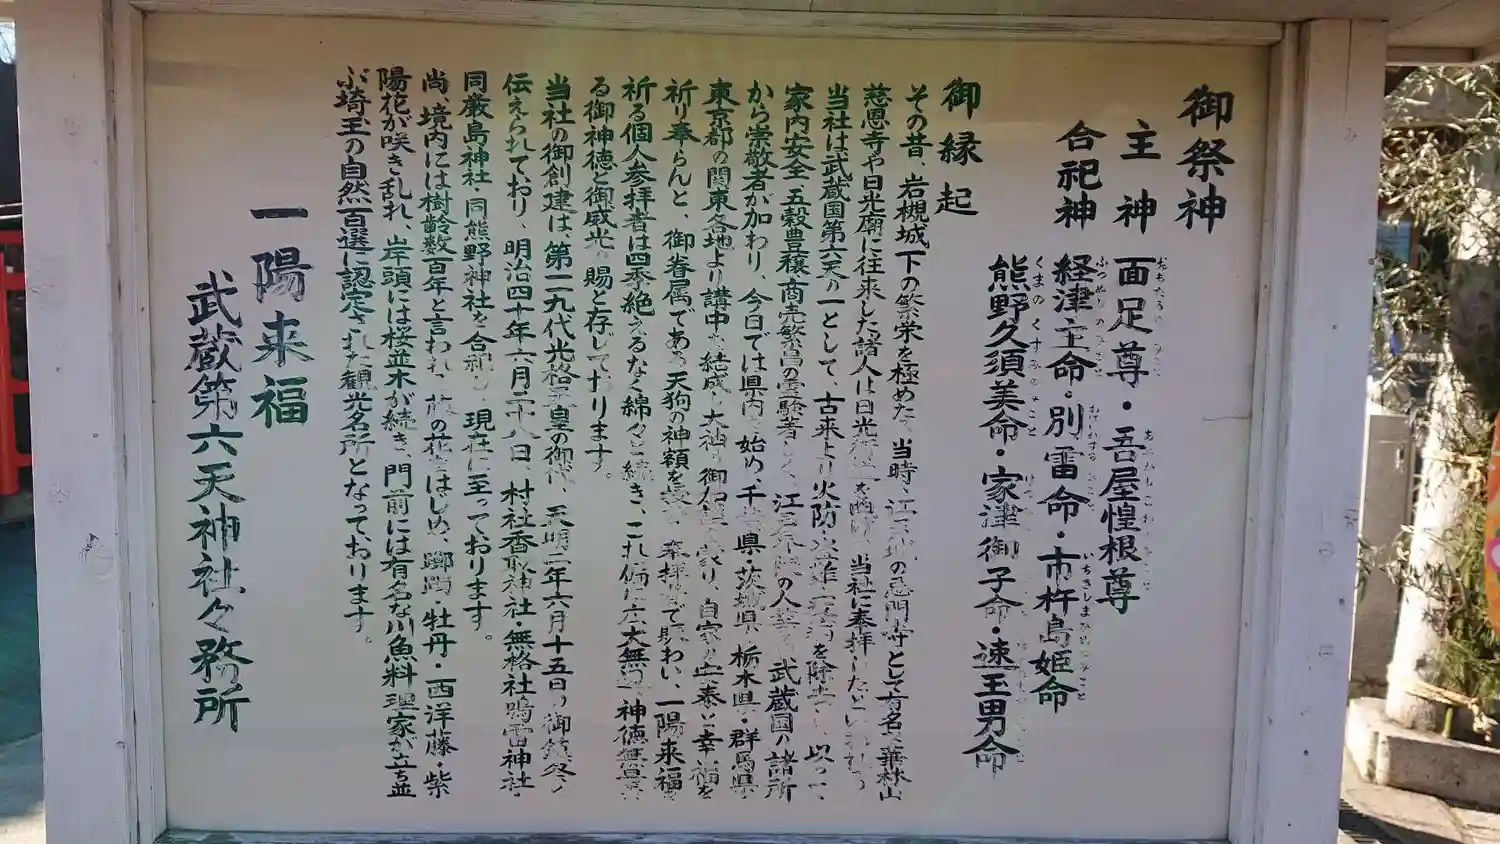 御祭神
主神 面足尊・吾屋惶根尊
合祀神 経津主命・別雷命・市杵島姫命
熊野久須美命・家津御子命・速玉男命
御縁起
その昔、岩槻城下の繁栄を極めた当時、江の鬼門寺として有名な華林山
慈恩寺や日光廟に往来した諸人は日光を当社に奉拝したといわれ
当社は武蔵国第六天の一として、古来より火防を除去し、以って
家内安全、五穀豊穣、商売繁昌の霊験著しく、江の人武蔵国の諸所
から崇敬者が加わり、今日では県内を始め、千葉県・茨城県・栃木県・群馬県・
東京都の関東各地より講中を結成し大神の御り、自家の安泰と幸福を
祈り奉らんと、御眷属である天狗の神額を奉拝で賑わい、一陽来福を
祈る個人参拝者は四季絶えるなく綿々と続き、これ偏に広大無神徳無
る御神徳と御威光の賜と存じております。
当社の御創建は、第一一九代光格天皇の御代、天明二年六月十五日の御鎮祭と
伝えられており、明治四十年六月二十八日、村社香取神社・無格社鳴雷神社・
同厳島神社・同熊野神社を合祀し、現在に至っております。
尚、境内には樹齢数百年と言われる藤の花をはじめ、躑躅・牡丹・西洋藤・紫
陽花が咲き乱れ、岸頭には桜並木が続き、門前には有名な川魚料理家が立ち並
ぶ埼玉の自然百選に認定された観光名所となっております。
一陽来福
武蔵第六天神社々務所